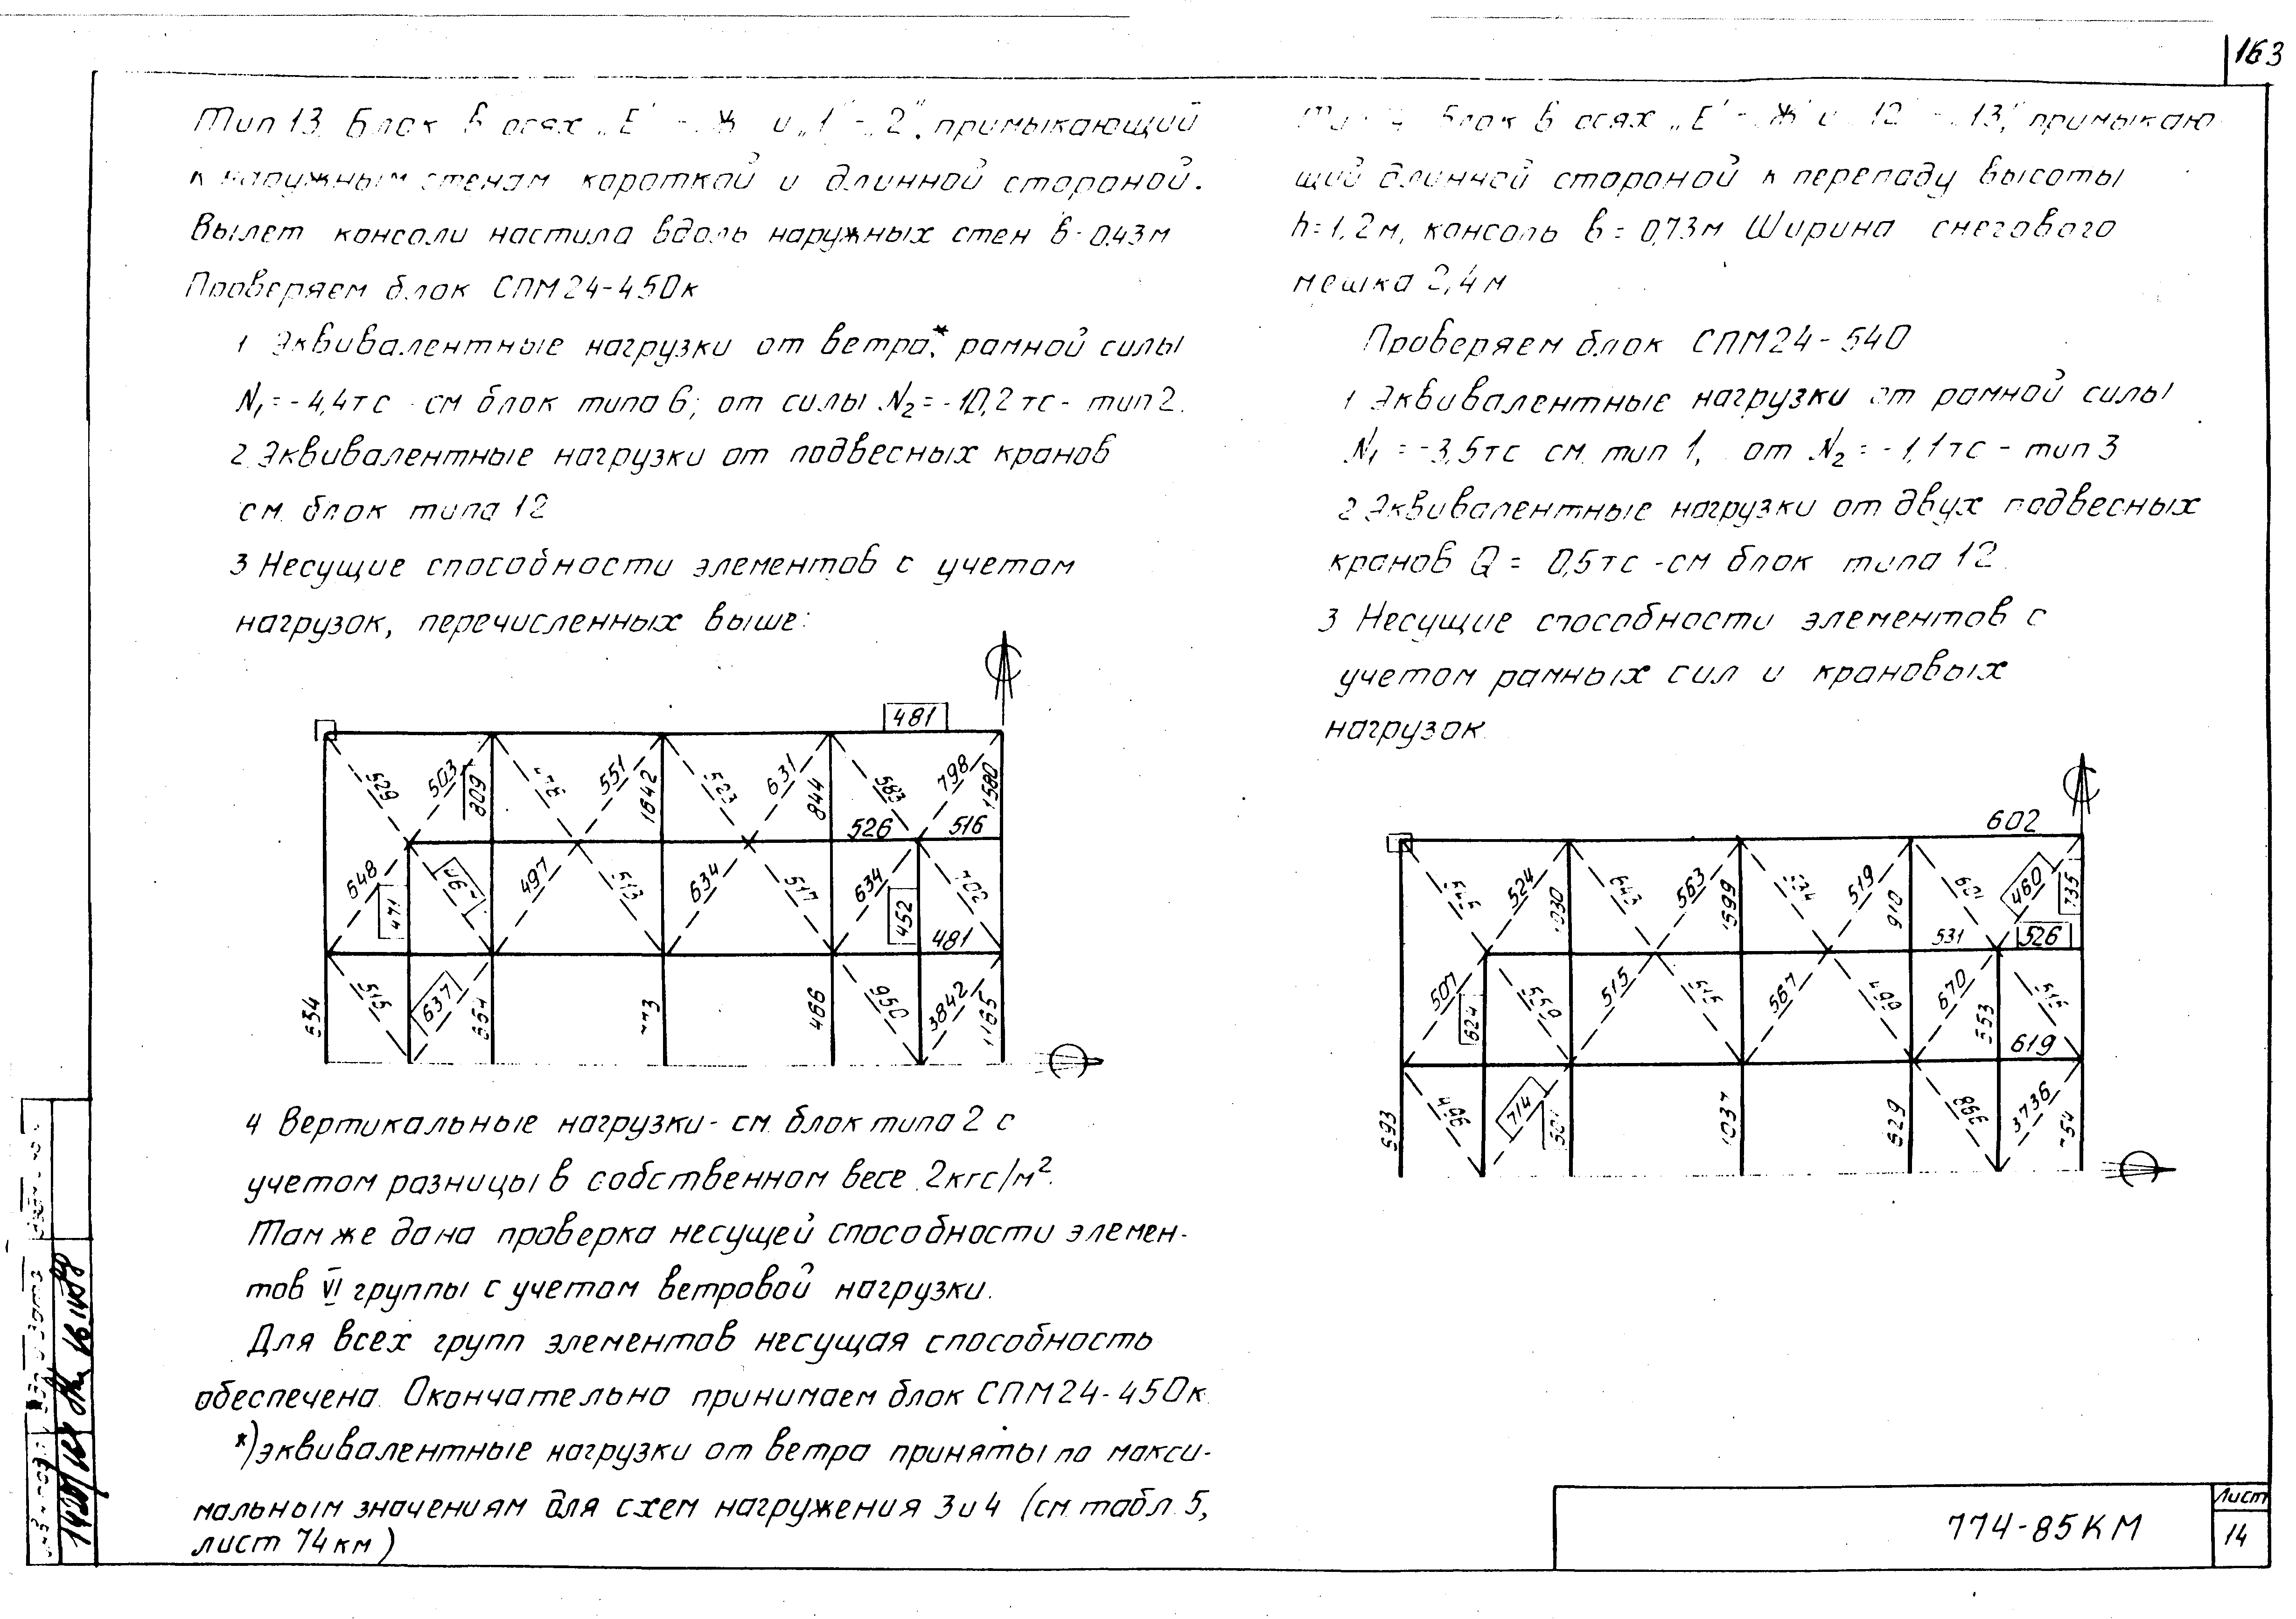 163
Тип 13. Блок в осях „Е" - „Ж" и „1" - „2", примыкающий
к наружным стенам короткой и длинной стороной.
Вылет консоли настила вдоль наружных стен в-0,43м
Проверяем блок СПМ24-450к
1 Эквивалентные нагрузки от ветра*, рамной силы
N₁=-4,4тс см блок типа 6; от силы N₂=-10,2тс- тип 2.
2 Эквивалентные нагрузки от подвесных кранов
см. блок типа 12
3 Несущие способности элементов с учетом
нагрузок, перечисленных выше:
481
529 503 809 551 1642 523 631 844 583 798 1580
526 516
648 471 497 513 634 517 634 452 702
481
634 515 637 466 950 3842 1165
4 Вертикальные нагрузки- см. блок типа 2 с
учетом разницы в собственном весе 2кгс/м².
Там же дана проверка несущей способности элемен-
тов VI группы с учетом ветровой нагрузки.
Для всех групп элементов несущая способность
обеспечена. Окончательно принимаем блок СПМ24-450к.
*) эквивалентные нагрузки от ветра приняты по макси-
мальным значениям для схем нагружения 3 и 4 (см. табл. 5,
лист 74км)
блок в осях „Е" - „Ж" и „12" - „13", примыкаю
щий длинной стороной к перепаду высоты
h=1,2м, консоль в=0,73м Ширина снегового
мешка 2,4м
Проверяем блок СПМ24-540
1 Эквивалентные нагрузки от рамной силы
N₁=-3,5тс см. тип 1, от N₂=-1,1тс - тип 3
2 Эквивалентные нагрузки от двух подвесных
кранов Q = 0,5тс -см блок типа 12.
3 Несущие способности элементов с
учетом рамных сил и крановых
нагрузок.
602
524 1030 643 563 1599 534 519 910 601 460 735
531 526
507 624 550 515 515 567 490 670 553 515
619
593 496 714 1037 629 998 3736
774-85КМ
Лист
14